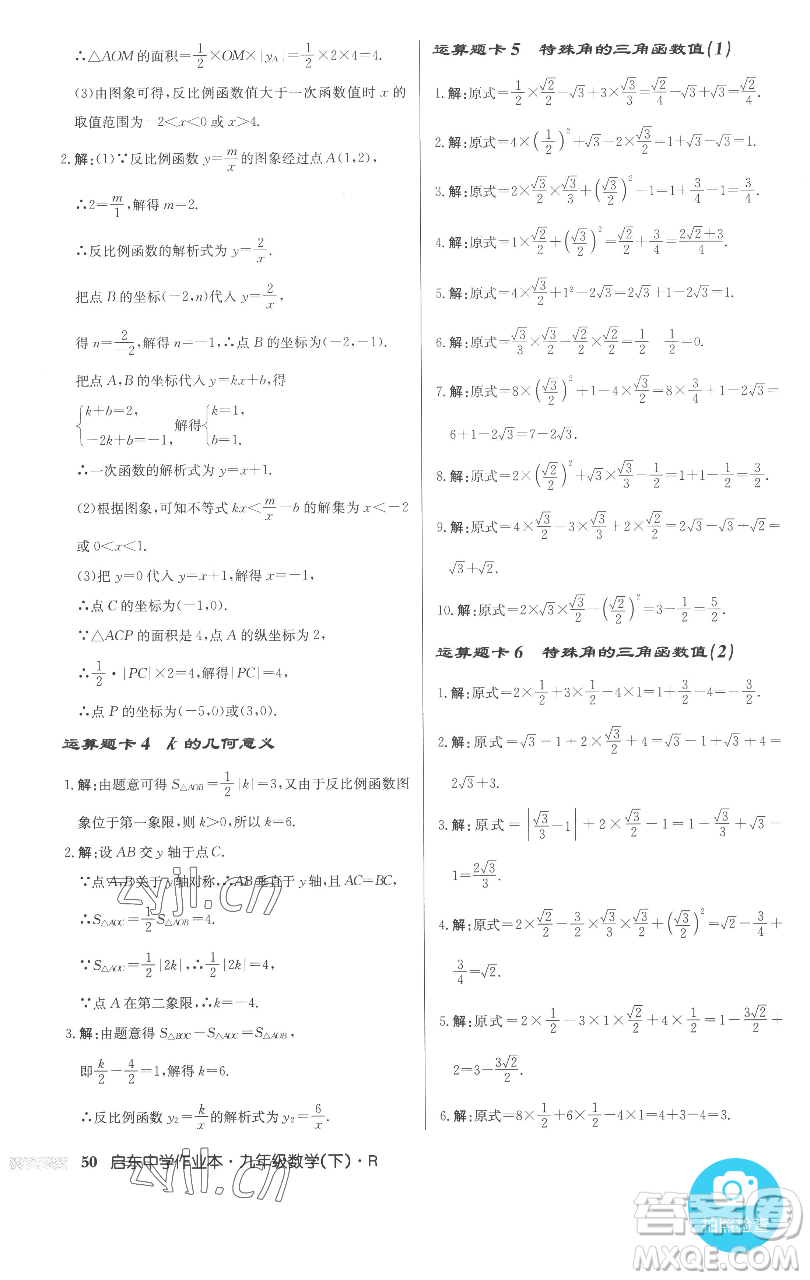 ∴△AOM的面积=1/2×OM×|y_A|=1/2×2×4=4.
(3)由图象可得,反比例函数值大于一次函数值时x的
取值范围为-2<x<0或x>4.
2.解:(1)∵反比例函数y=m/x的图象经过点A(1,2),
∴2=m/1,解得m=2.
∴反比例函数的解析式为y=2/x.
把点B的坐标(-2,n)代入y=2/x,
得n=2/-2,解得n=-1;∴点B的坐标为(-2,-1).
把点A,B的坐标代入y=kx+b,得
{k+b=2, -2k+b=-1, 解得{k=1, b=1.
∴一次函数的解析式为y=x+1.
(2)根据图象,可知不等式kx<m/x-b的解集为x<-2
或0<x<1.
(3)把y=0代入y=x+1,解得x=-1.
∴点C的坐标为(-1,0).
∵△ACP的面积是4,点A的纵坐标为2,
∴1/2·|PC|×2=4,解得|PC|=4.
∴点P的坐标为(-5,0)或(3,0).
运算题卡4 k的几何意义
1.解:由题意可得S△AOB=1/2|k|=3,又由于反比例函数图
象位于第一象限,则k>0,所以k=6.
2.解:设AB交y轴于点C.
∵点A,B关于y轴对称,∴AB垂直于y轴,且AC=BC,
∴S△AOC=1/2S△AOB=4.
∵S△AOC=1/2|k|,∴1/2|k|=4,
∵点A在第二象限,∴k=-4.
3.解:由题意得S△BOC-S△AOC=S△AOB,
即k/2-4/2=1,解得k=6.
∴反比例函数y₂=k/x的解析式为y₂=6/x.
50 启东中学作业本·九年级数学(下)·R
运算题卡5 特殊角的三角函数值(1)
1.解:原式=1/2×√2/2-√3+3×√3/3=√2/4-√3+√3=√2/4.
2.解:原式=4×(1/2)²+√3-2×√3/2=1+√3-√3=1.
3.解:原式=2×√3/2×√3/3+(√3/2)²-1=1+3/4-1=3/4.
4.解:原式=1×√3/2+(√3/2)²=√3/2+3/4=(2√3+3)/4.
5.解:原式=4×√3/2+1²-2√3=2√3+1-2√3=1.
6.解:原式=√3/3×√3/2-√2/2×√2/2=1/2 1/2=0.
7.解:原式=8×(√3/2)²+1-4×√3/2=8×3/4+1-2√3=
6+1-2√3=7-2√3.
8.解:原式=2×(√2/2)²+√3/2×√3-1/2=1+3/2-1/2=2.
9.解:原式=4×√3/2-3×√3/3+2×√2/2=2√3-√3+√2=
√3+√2.
10.解:原式=2×√3×√3/2-(√2/2)²=3-1/2=5/2.
运算题卡6 特殊角的三角函数值(2)
1.解:原式=2×1/2+3×1/2-4×1=1+3/2-4=-3/2.
2.解:原式=2×√3/2×2-1+√3+4=2√3-1+√3+4=
2√3+3.
3.解:原式=|√3/3-1|+2×√3/2=1-√3/3+√3-
1=2√3/3.
4.解:原式=2×√2/2-3/2×√3/3×√3/2+(√3/2)²=√2-3/4+
3/4=√2.
5.解:原式=4×1/2-3×1×√2/2+2×1/2=2-3√2/2+
2=3-3√2/2.
zyjl.cn
zyjl.cn
答案圈
拍照检查
MXQE.COM